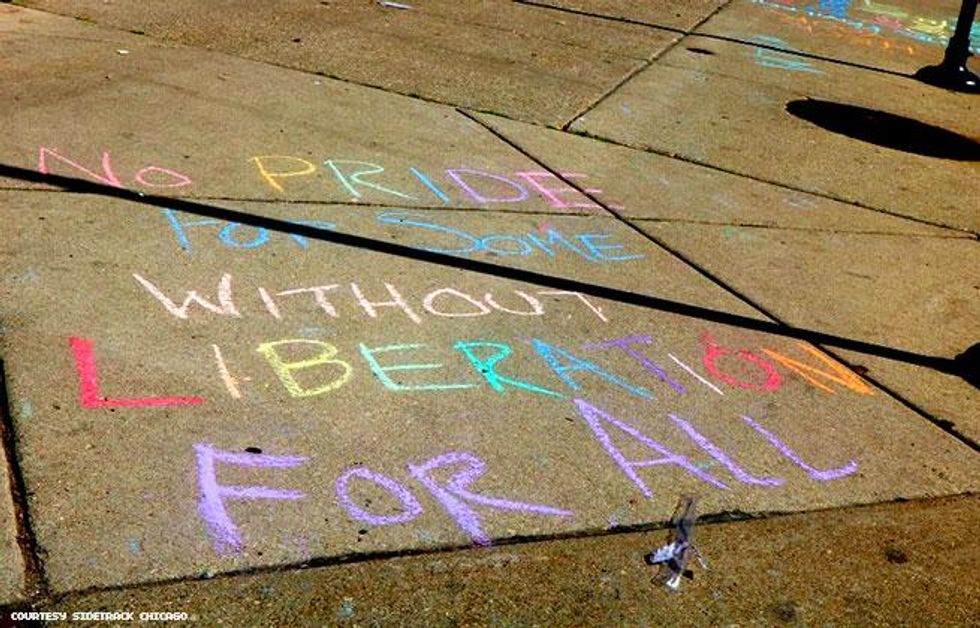 No PRIDE
For Some
WITHOUT
LIBERATION
FOR ALL
COURTESY SIDETRACK CHICAGO